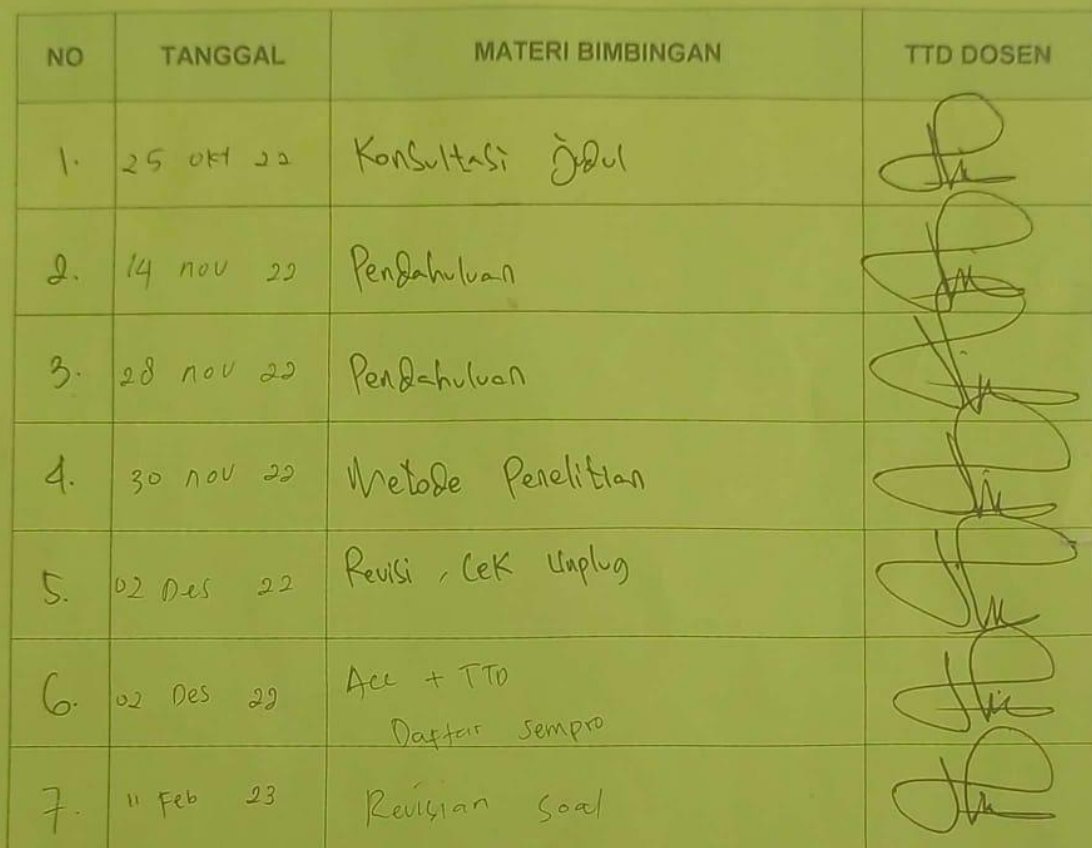 NO TANGGAL MATERI BIMBINGAN TTD DOSEN
1. 25 okt 22 Konsultasi Judul
2. 14 nov 22 Pendahuluan
3. 28 nov 22 Pendahuluan
4. 30 nov 22 Metode Penelitian
5. 02 Des 22 Revisi, Cek Unplug
6. 02 Des 22 Acc + TTD
Daftar Sempro
7. 11 Feb 23 Revisian Soal